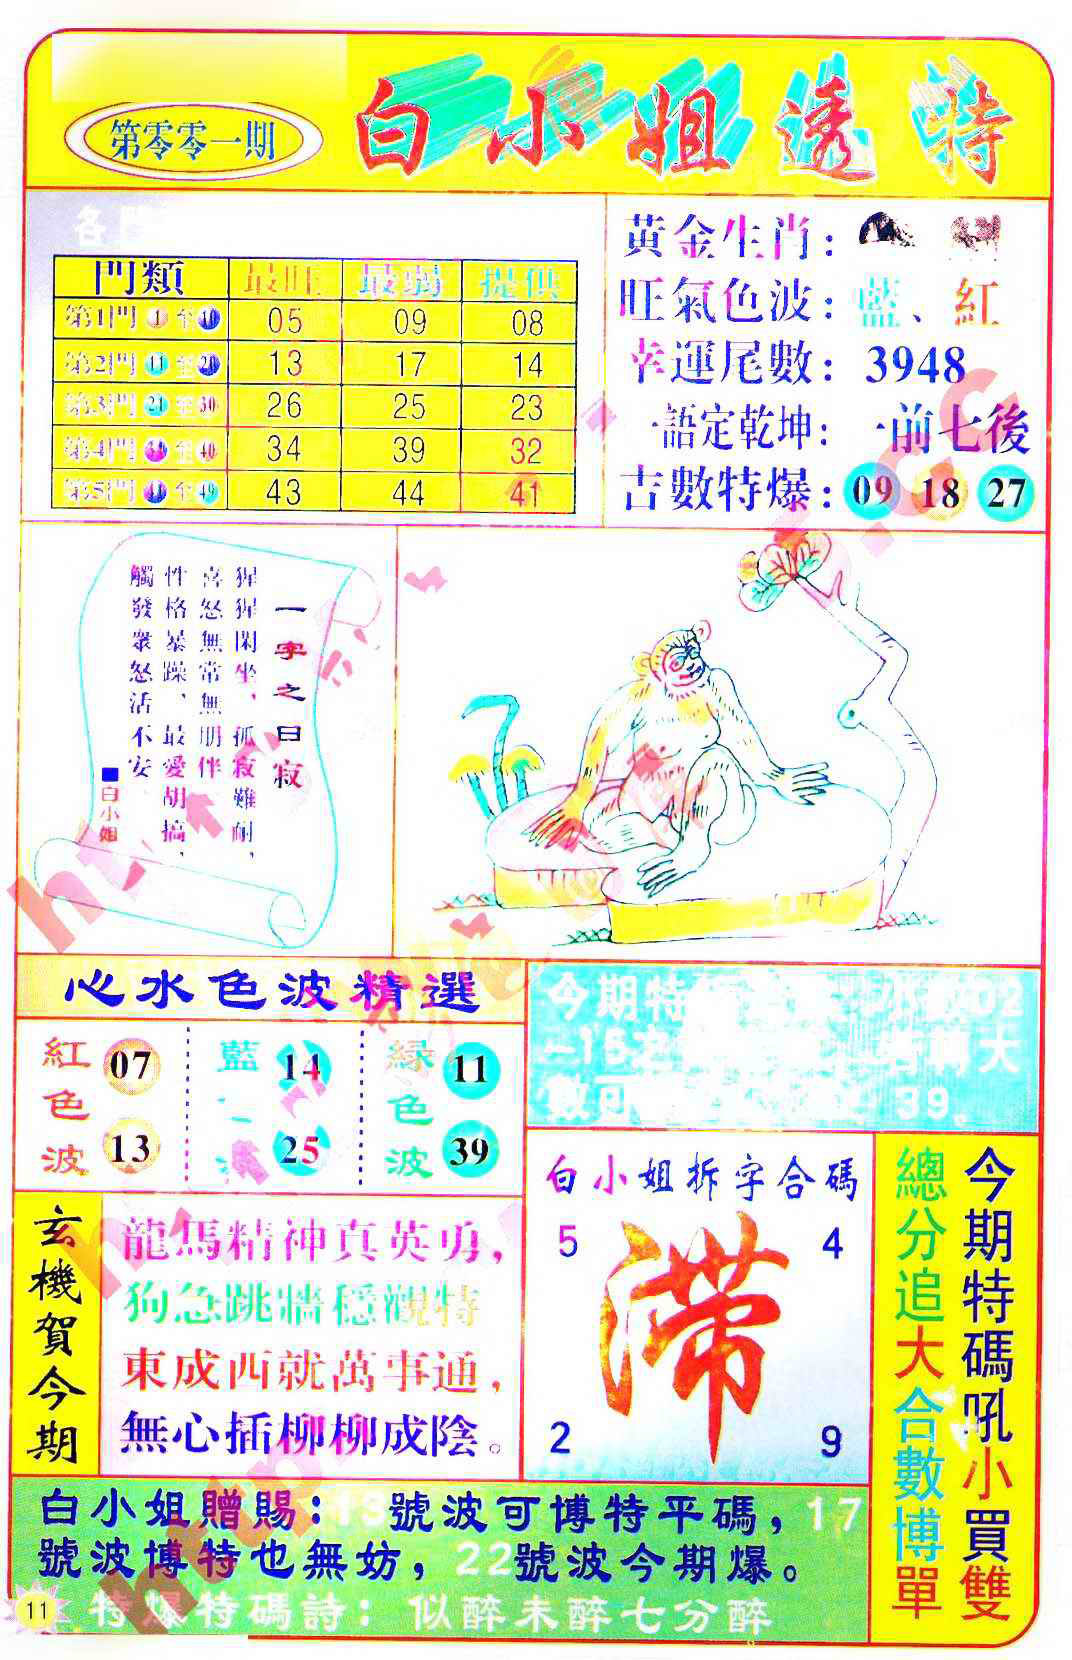 白小姐透特
第零零一期
門類 最旺 最弱 提供
第1門 1 至 10 05 09 08
第2門 11 至 20 13 17 14
第3門 21 至 30 26 25 23
第4門 31 至 40 34 39 32
第5門 41 至 49 43 44 41
黃金生肖：
旺氣色波：藍、紅
幸運尾數：3948
一語定乾坤：一前七後
古數特爆：09 18 27
一字之曰寂
猩猩閑坐，孤寂難耐，
喜怒無常無朋伴
性格暴躁，最愛胡搞，
觸發衆怒活不安
■白小姐
心水色波精選
紅色波 07 13
藍 14 25
緑色波 11 39
今期特
大
39。
白小姐拆字合碼
5 4
滞
2 9
今期特碼吼小買雙
總分追大合數博單
玄機賀今期
龍馬精神真英勇，
狗急跳牆穩觀特
東成西就萬事通，
無心插柳柳成陰。
白小姐贈賜：13號波可博特平碼，17
號波博特也無妨，22號波今期爆。
特爆特碼詩：似醉未醉七分醉
11